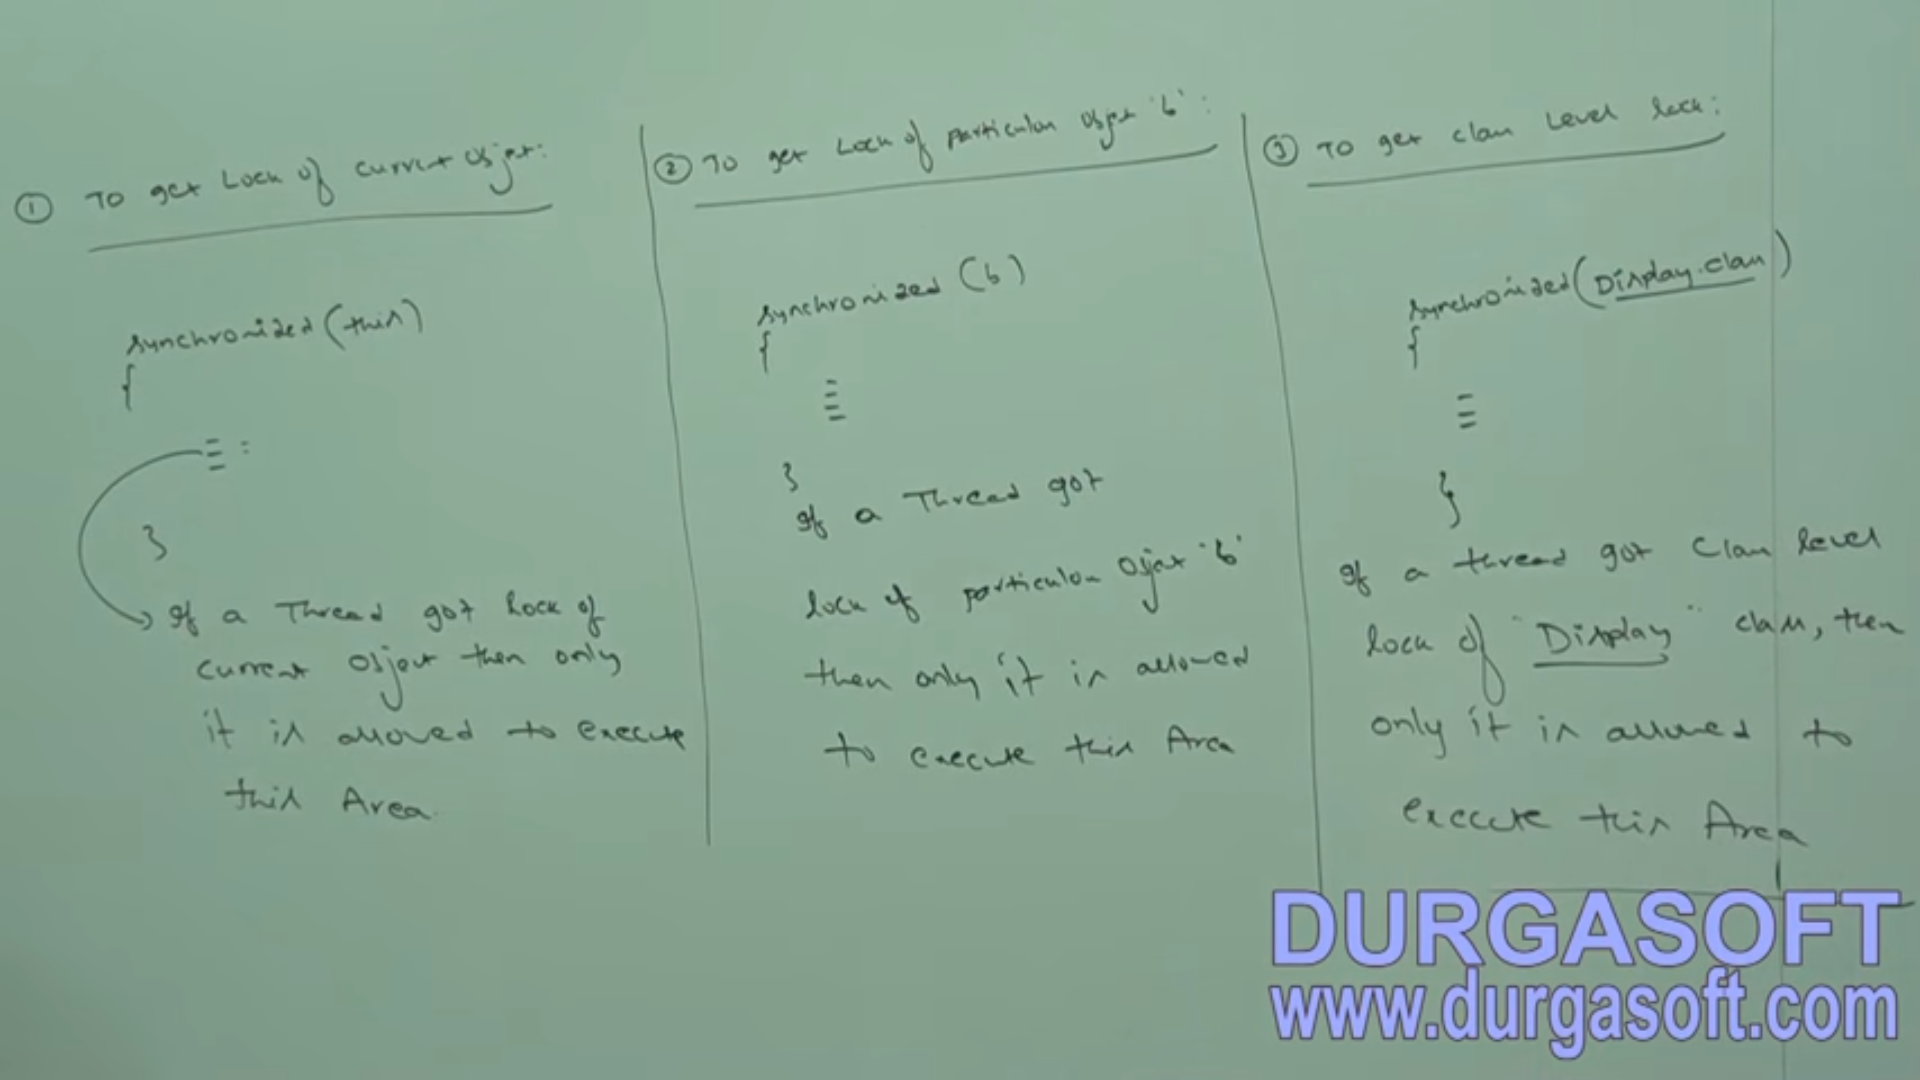 ① To get Lock of current object:
synchronized(this)
{
}
If a Thread got lock of
current object then only
it is allowed to execute
this Area.
② To get Lock of particular object 'b':
synchronized (b)
{
}
If a Thread got
lock of particular object 'b'
then only it is allowed
to execute this Area
③ To get class Level lock:
synchronized(Display.class)
{
}
If a thread got class level
lock of "Display" class, then
only it is allowed to
execute this Area
DURGASOFT
www.durgasoft.com